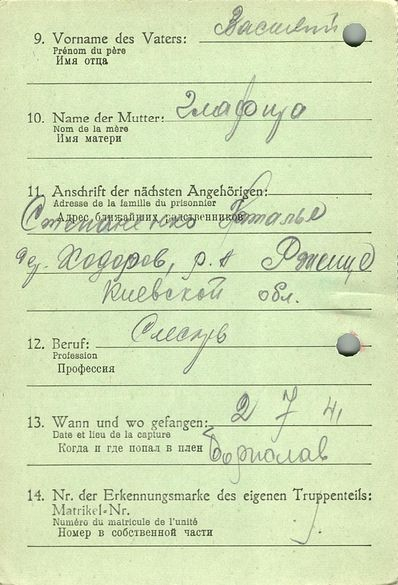 9. Vorname des Vaters: Василий
Prénom du père
Имя отца
10. Name der Mutter: Глафира
Nom de la mère
Имя матери
11. Anschrift der nächsten Angehörigen:
Adresse de la famille du prisonnier
Адрес ближайших родственников
Степаненко Наталье
дер. Ходоров, р.н Ржище
Киевской обл.
12. Beruf: Слесарь
Profession
Профессия
13. Wann und wo gefangen: 2 7 41
Date et lieu de la capture
Когда и где попал в плен Борислав
14. Nr. der Erkennungsmarke des eigenen Truppenteils:
Matrikel-Nr.
Numéro du matricule de l'unité
Номер в собственной части